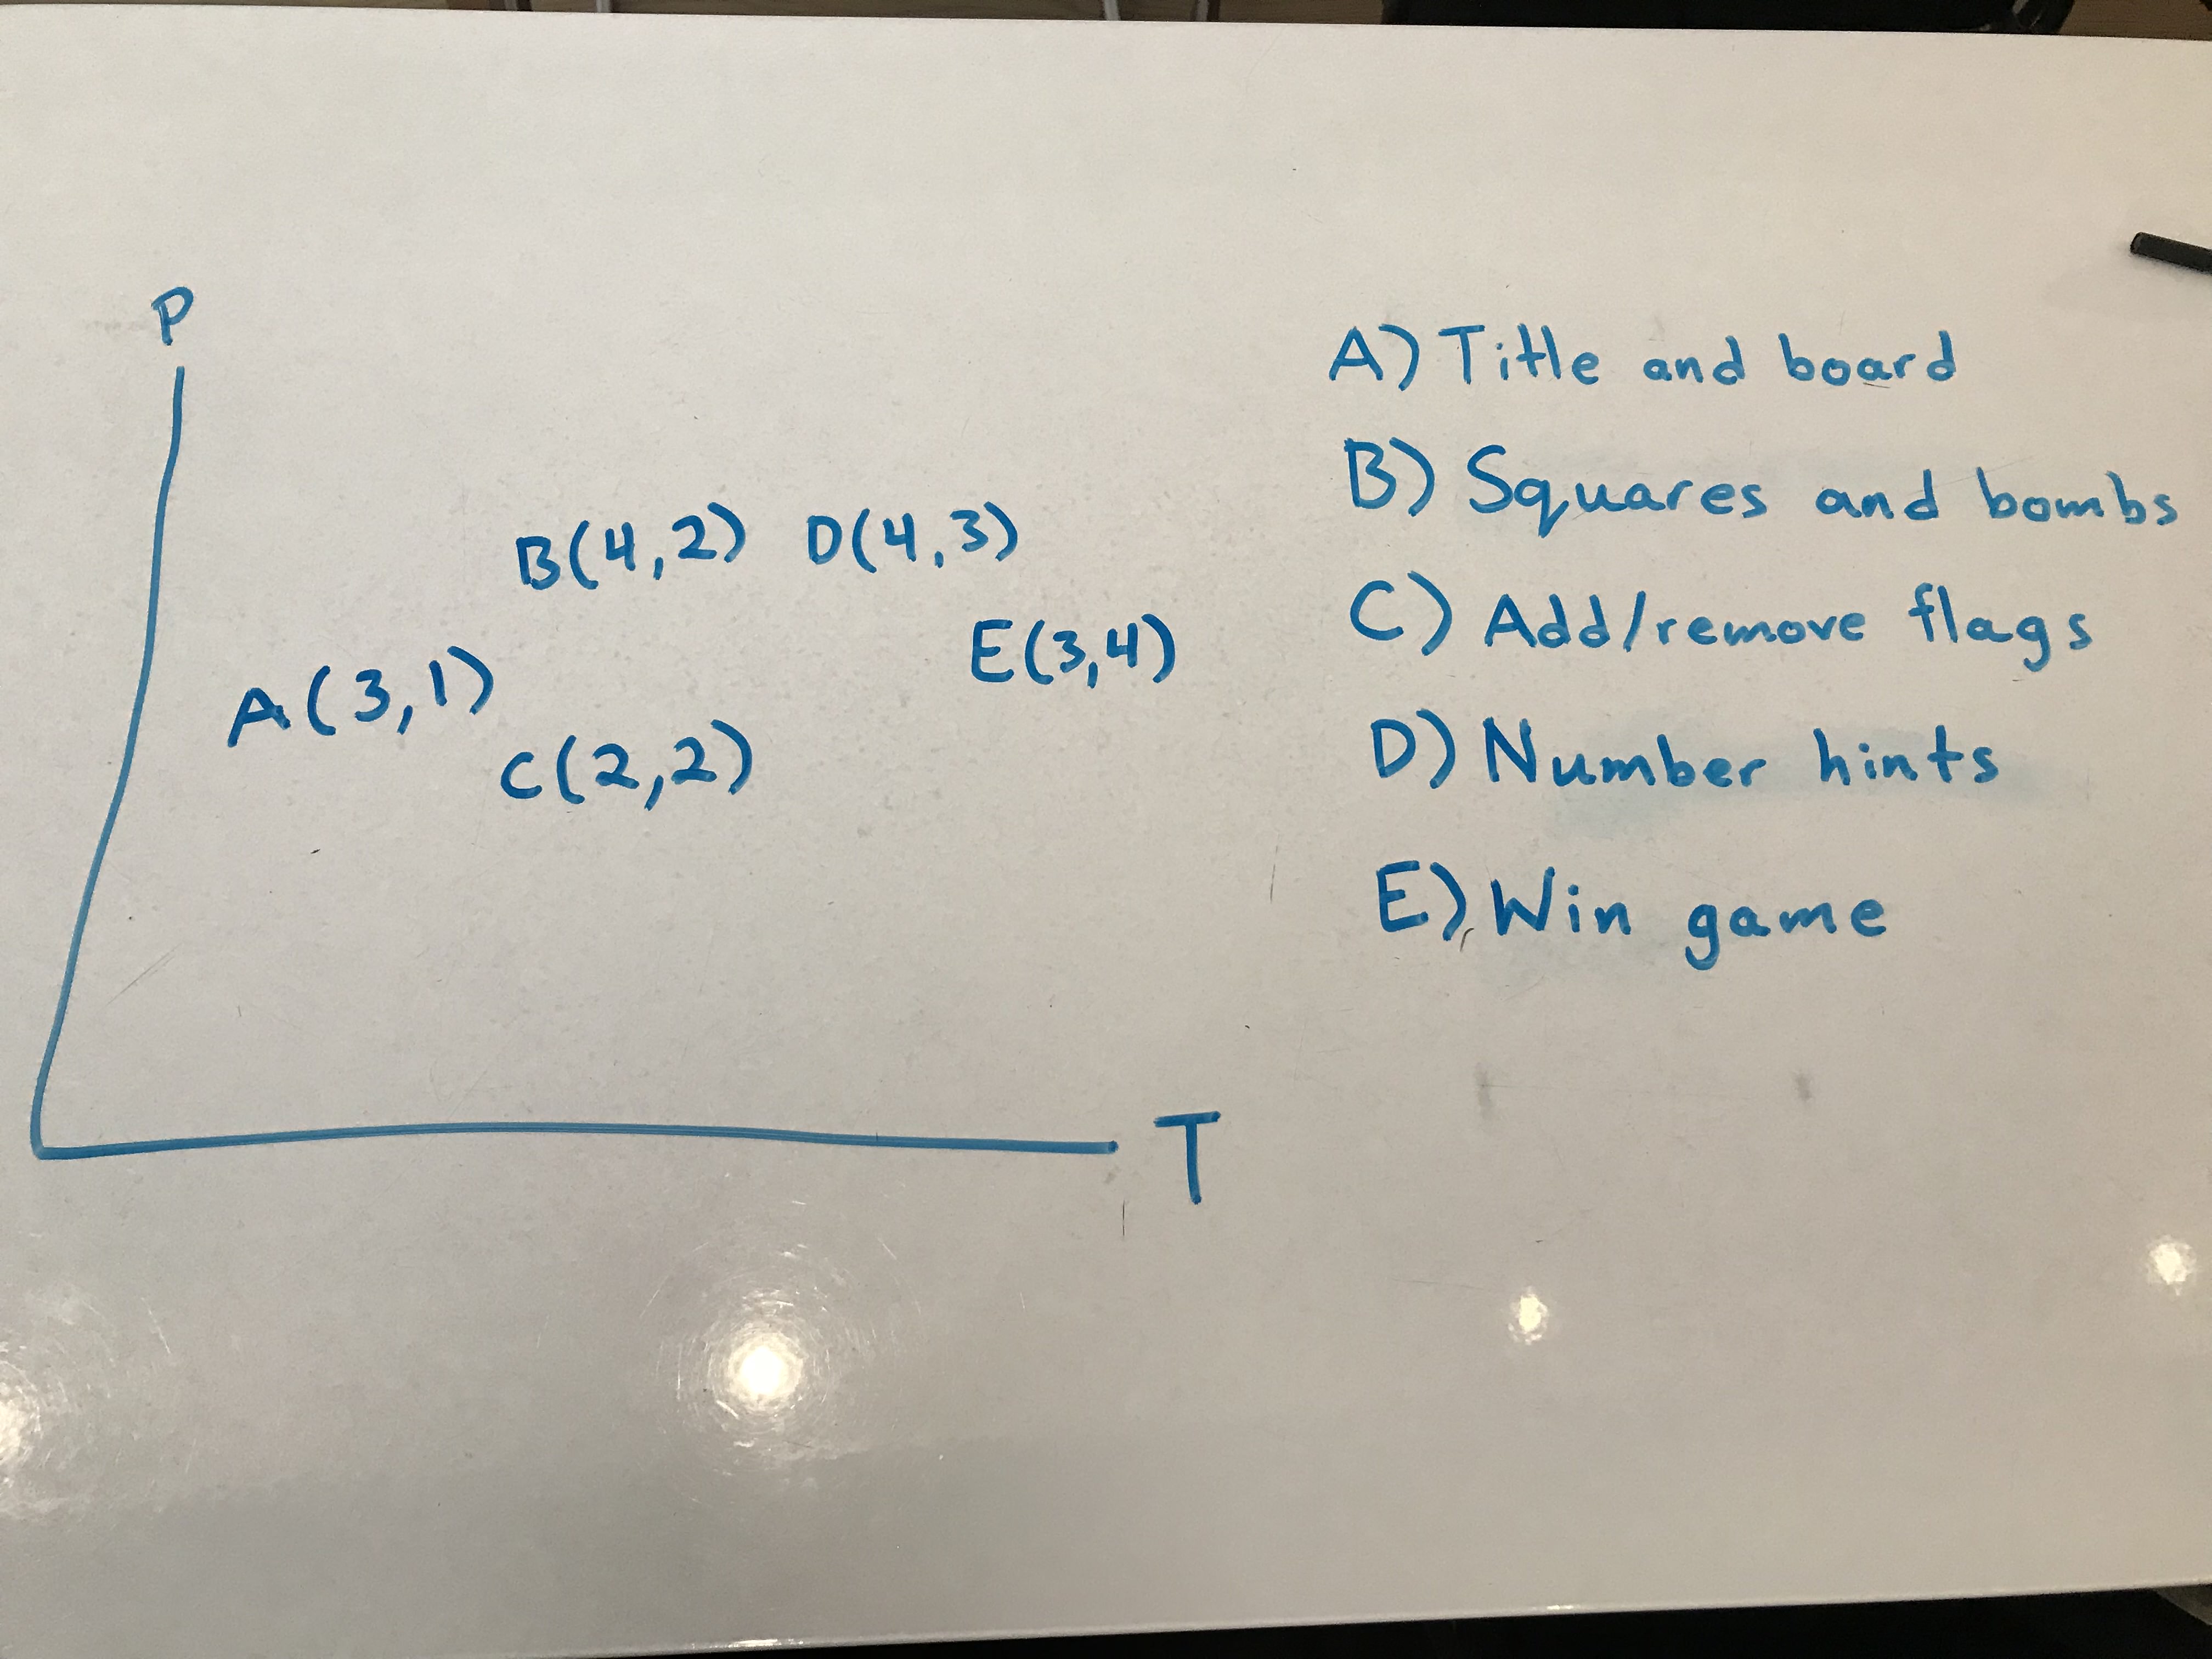 P
B(4,2) D(4,3)
E(3,4)
A(3,1)
C(2,2)
T
A) Title and board
B) Squares and bombs
C) Add/remove flags
D) Number hints
E) Win game